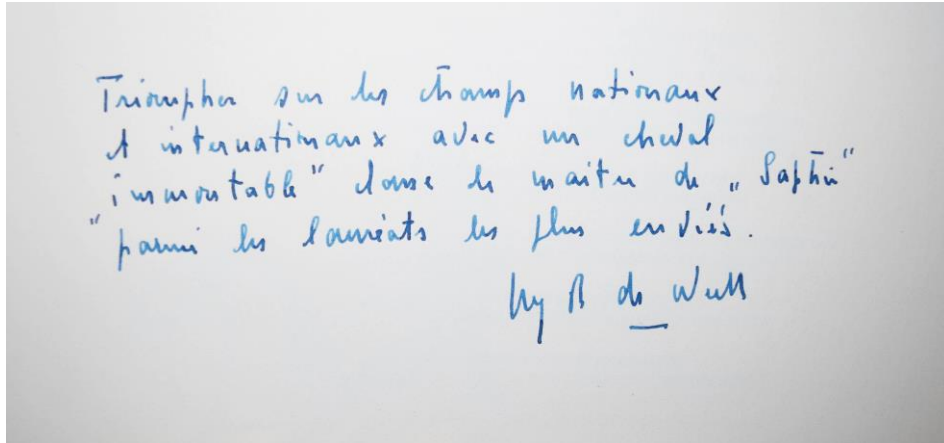 Triompher sur les champs nationaux
et internationaux avec un cheval
"immontable" classe le maitre de „Saphir"
parmi les lauréats les plus enviés.
B de